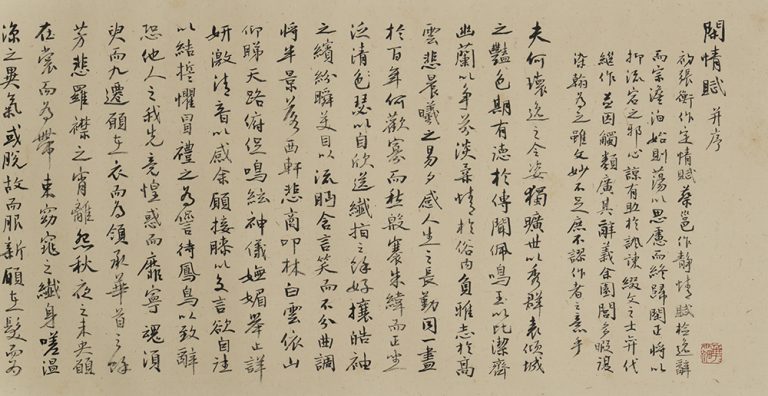 閑情賦 并序
初張衡作定情賦蔡邕作静情賦檢逸辭
而宗澹泊始則蕩以思慮而終歸閑正將以
抑流宕之邪心諒有助於諷諫綴文之士奕代
繼作並因觸類廣其辭義余園閭多暇復
染翰為之雖文妙不足庶不謬作者之意乎
夫何瓌逸之令姿獨曠世以秀群表傾城
之豔色期有德於傳聞佩鳴玉以比潔齊
幽蘭以爭芬淡柔情於俗内負雅志於高
雲悲晨曦之易夕感人生之長勤同一盡
於百年何歡寡而愁殷褰朱緯而正坐
泛清瑟以自欣送纖指之餘好攘皓袖
之繽紛瞬美目以流眄含言笑而不分曲調
將半景落西軒悲商叩林白雲依山
仰睇天路俯促鳴絃神儀嫵媚舉止詳
妍激清音以感余願接膝以交言欲自往
以結誓懼冒禮之為愆待鳳鳥以致辭
恐他人之我先意惶惑而靡寧魂須
臾而九遷願在衣而為領承華首之餘
芳悲羅襟之宵離怨秋夜之未央願
在裳而為帶束窈窕之纖身嗟温
涼之異氣或脱故而服新願在髮而為